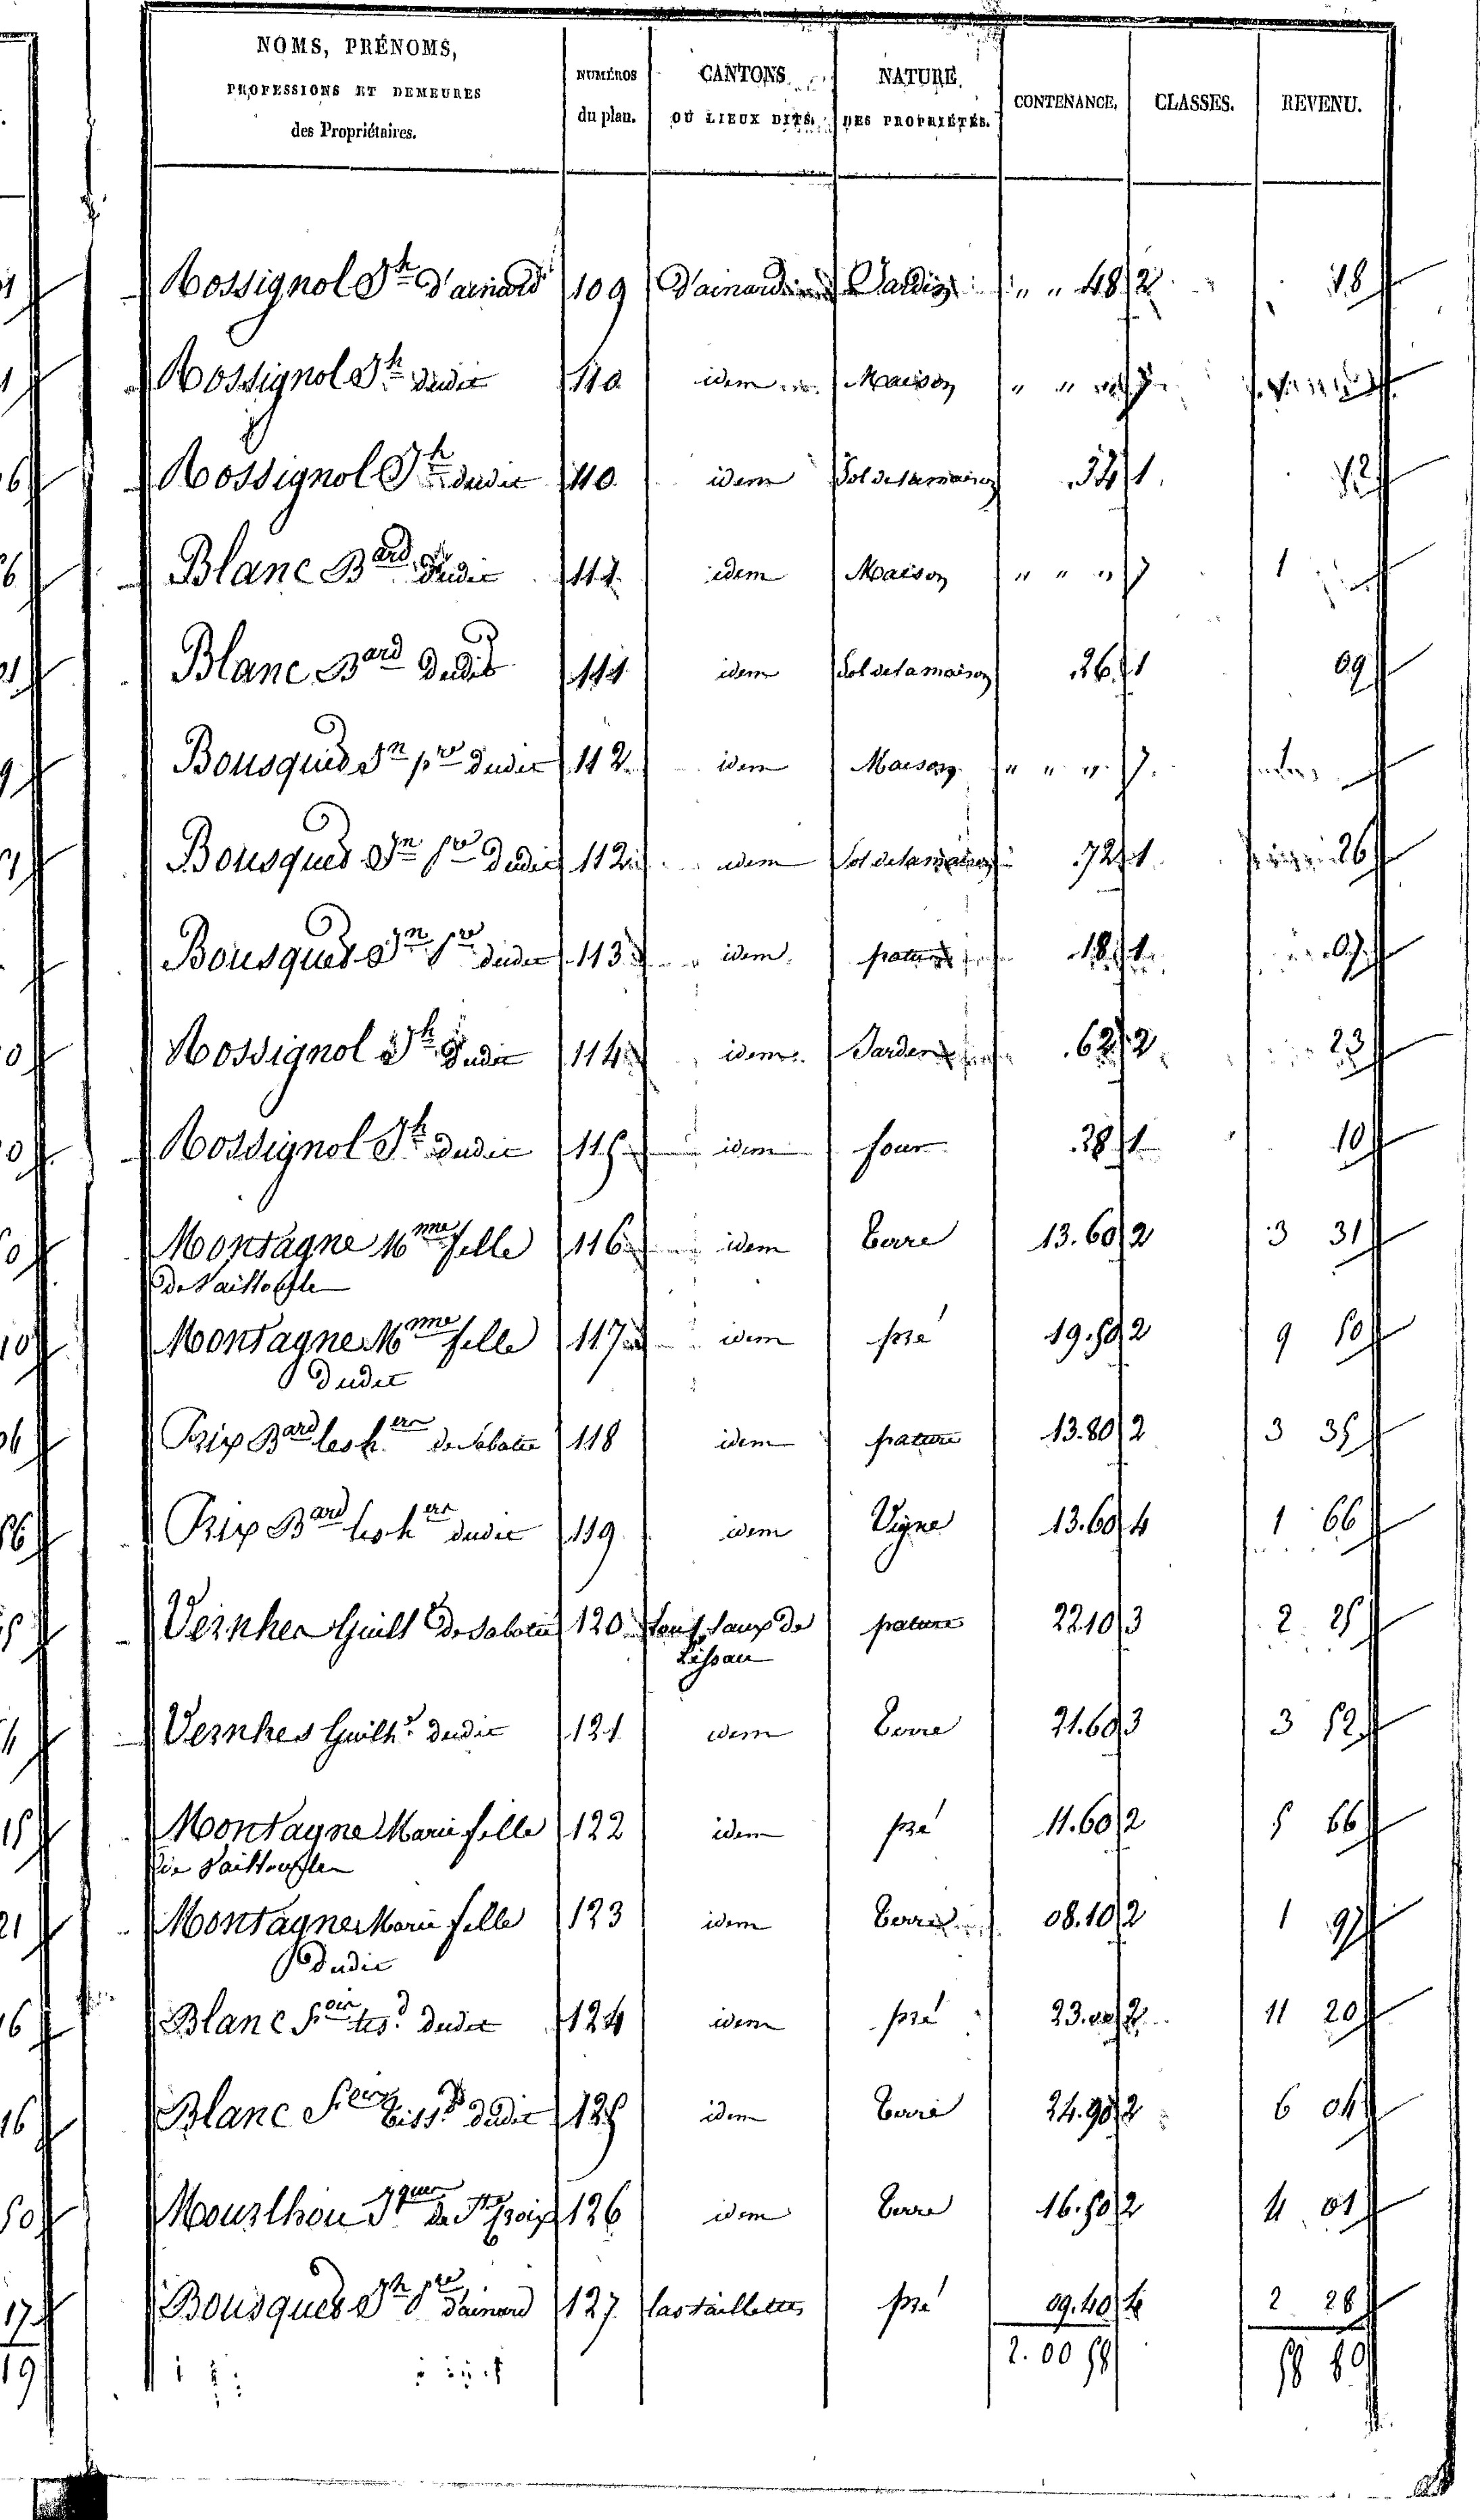 NOMS, PRÉNOMS, PROFESSIONS ET DEMEURES des Propriétaires. NUMÉROS du plan. CANTONS OU LIEUX DITS. NATURE DES PROPRIÉTÉS. CONTENANCE. CLASSES. REVENU.
Rossignol Jh d'ainard 109 D'ainard Jardin " " 48 2 18
Rossignol Jh dudit 110 idem Maison " " " 7
Rossignol Jh dudit 110 idem Sol de la maison 34 1 12
Blanc Bard dudit 111 idem Maison " " " 7 1
Blanc Bard dudit 111 idem Sol de la maison 26 1 09
Bousquet Jn pre dudit 112 idem Maison " " " 7
Bousquet Jn pre dudit 112 idem Sol de la maison 72 1 26
Bousquet Jn pre dudit 113 idem pature 18 1 07
Rossignol Jh dudit 114 idem Jardin 62 2 23
Rossignol Jh dudit 115 idem four 28 1 10
Montagne Mnne fille 116 idem terre 13.60 2 3 31
de
Montagne Mnne fille 117 idem pré 19.50 2 9 50
dudit
Prix Bard les hers de Sabatié 118 idem pature 13.80 2 3 35
Prix Bard les hers dudit 119 idem Vigne 13.60 4 1 66
Vernhes Guilt de Sabatié 120 pature 22.10 3 2 25
Vernhes Guilh dudit 121 idem terre 21.60 3 3 52
Montagne Marie fille 122 idem pré 11.60 2 5 66
de
Montagne Marie fille 123 idem terre 08.10 2 1 97
dudit
Blanc dudit 124 idem pré 23.00 2 11 20
Blanc dudit 125 idem terre 24.90 2 6 04
Mourlhou de Ste Croix 126 idem terre 16.50 2 4 01
Bousquet Jn pre d'ainard 127 las taillettes pré 09.40 4 2 28
2.00 58 58 80